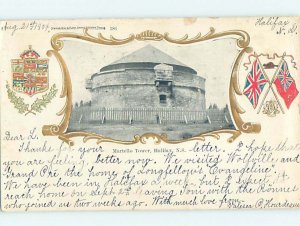 Aug 21st 1904
Halifax
N. S.
Dear L.
Martello Tower, Halifax, N.S.
Thanks for your letter. I hope that
you are feeling better now. We visited Wolfville, and
Grand Pré the home of Longfellow's "Evangeline".
We have been in Halifax a week, but I expect to
reach home on Sept 2nd leaving Toni with the
who joined us two weeks ago.
With much love from